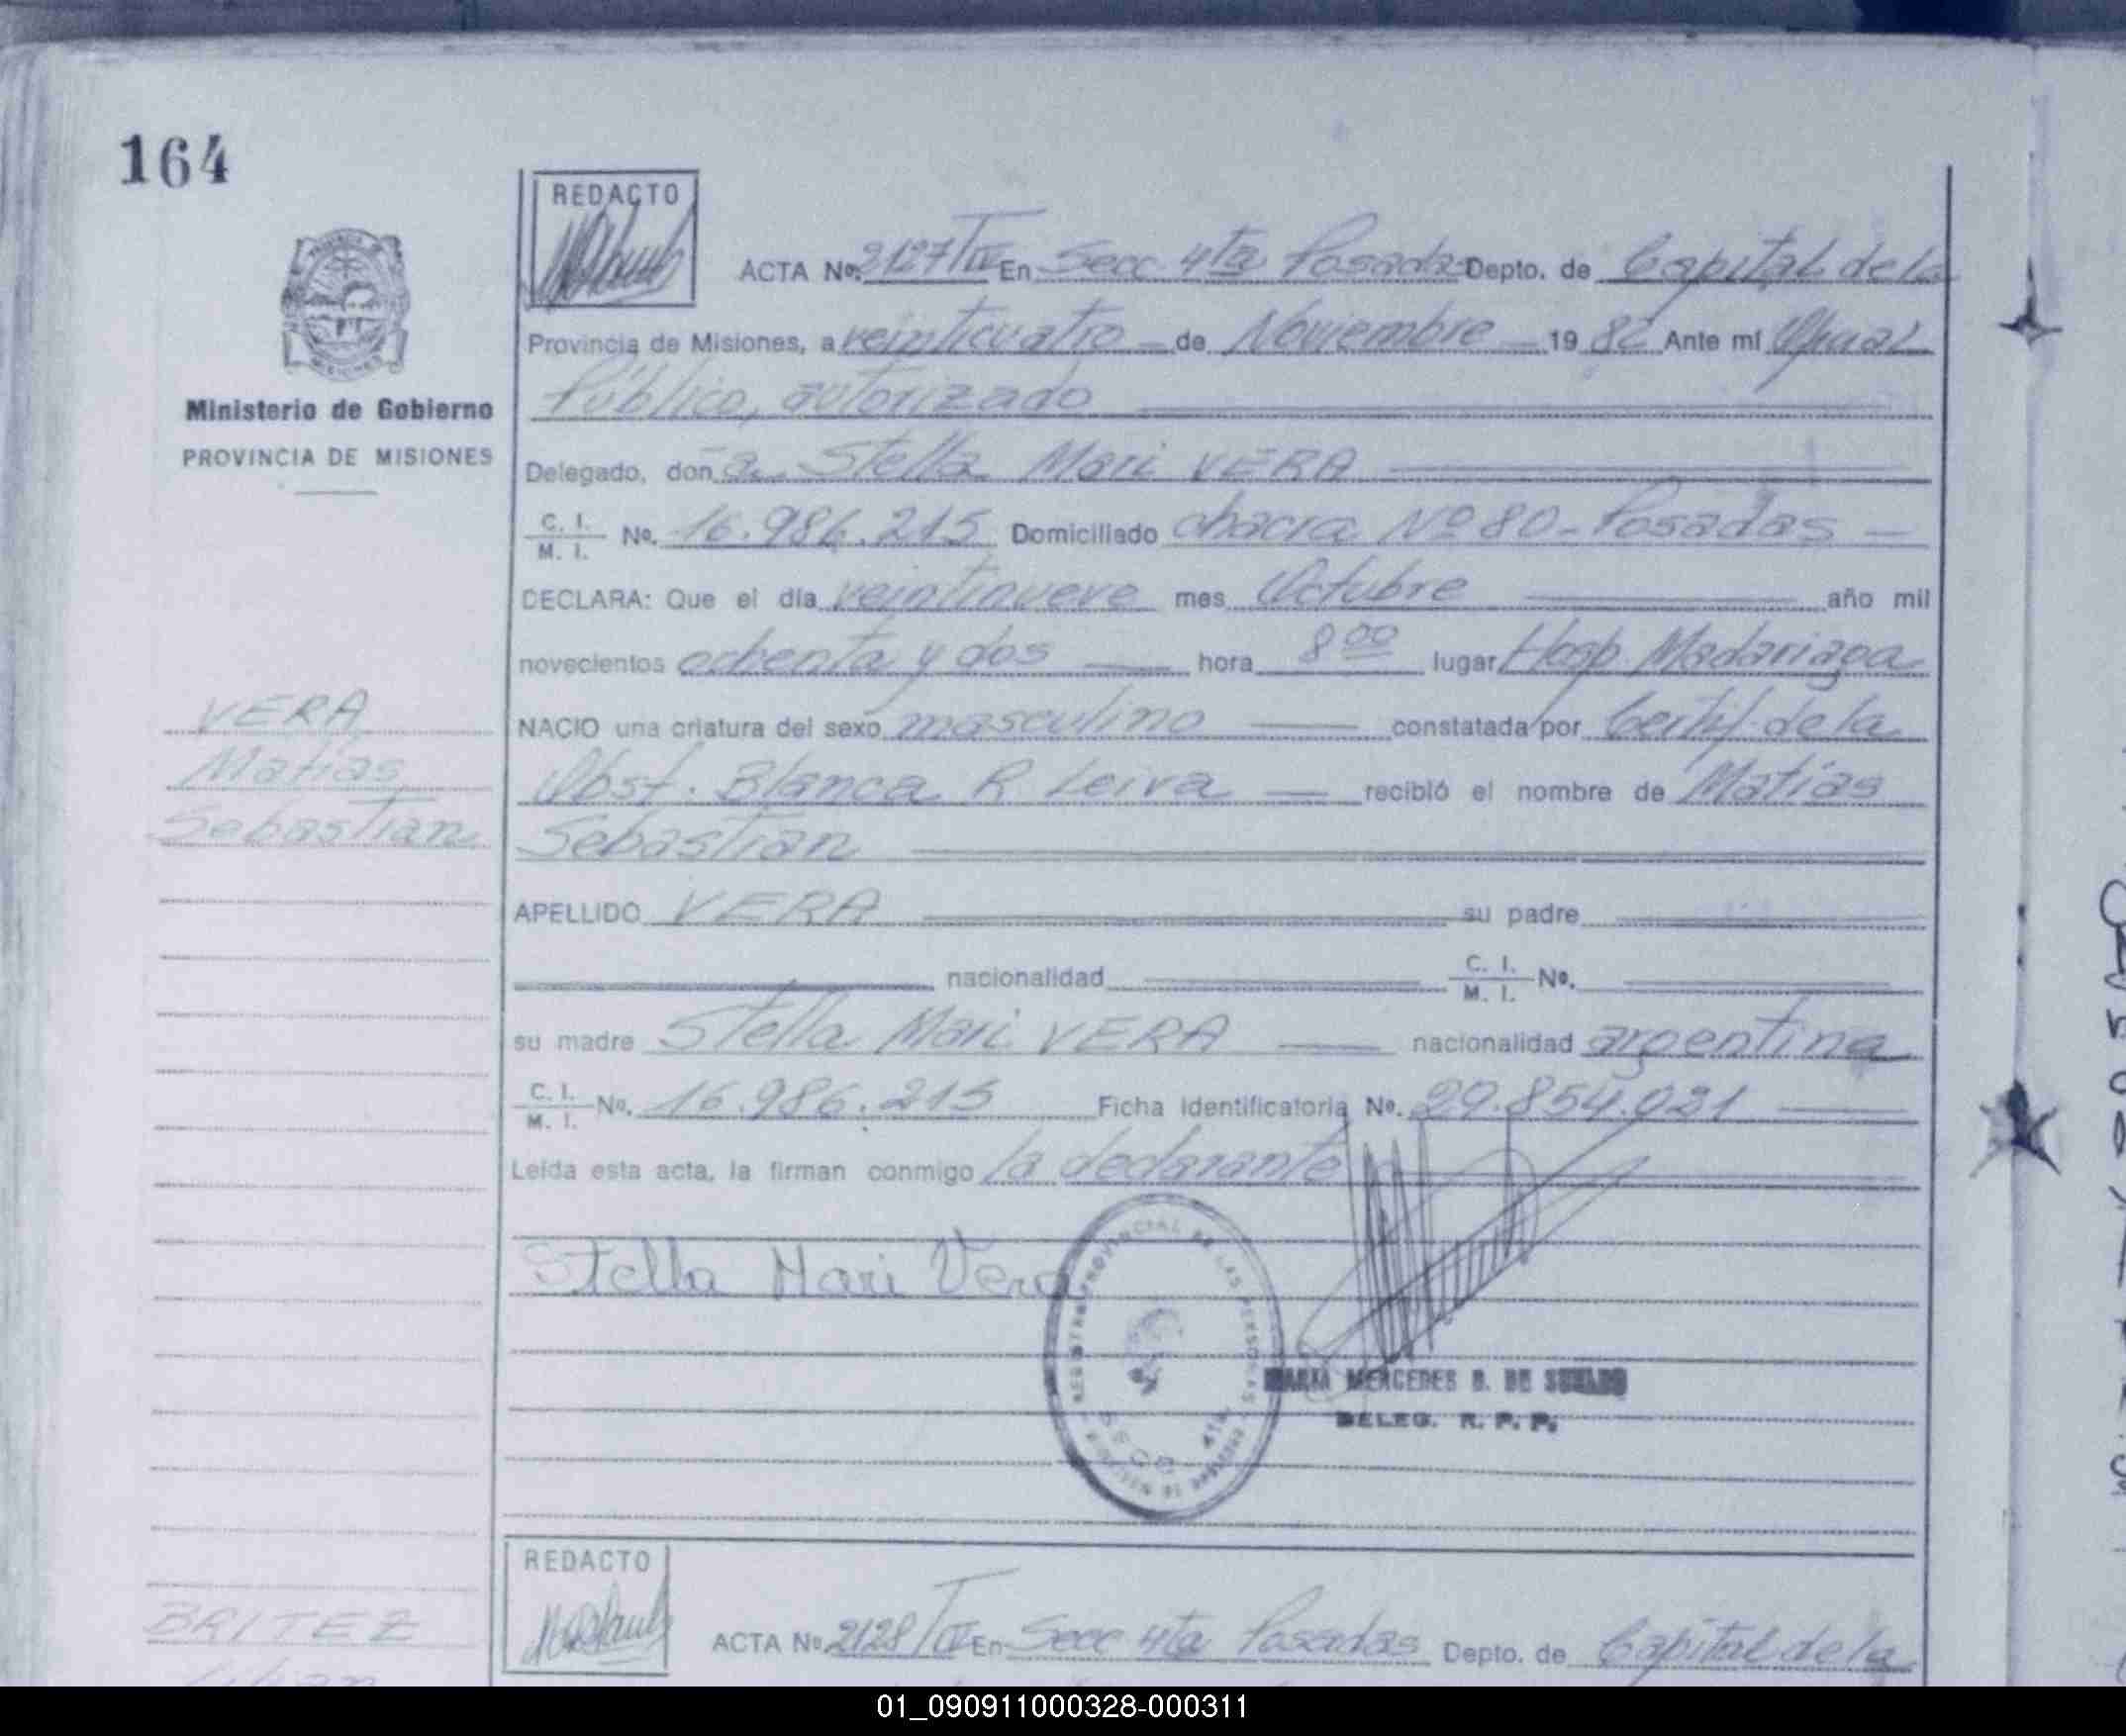 164
REDACTO
ACTA No. 2127/TIV En Secc 4ta Posadas Depto. de Capital de la
Provincia de Misiones, a veinticuatro de Noviembre 19 82 Ante mí Oficial
Público, autorizado
Ministerio de Gobierno
PROVINCIA DE MISIONES
Delegado, don a. Stella Mari VERA
C. I. M. I. No. 16.986.215 Domiciliado chacra Nº 80 - Posadas -
DECLARA: Que el día veintinueve mes Octubre año mil
novecientos ochenta y dos hora 8 00 lugar Hosp. Madariaga
VERA
Matias
Sebastian
NACIO una criatura del sexo masculino constatada por Certif. de la
Obst. Blanca R Leiva recibió el nombre de Matias
Sebastian
APELLIDO VERA su padre
nacionalidad C. I. M. I. No.
su madre Stella Mari VERA nacionalidad argentina
C. I. M. I. No. 16.986.215 Ficha Identificatoria No. 29.854.031
Leída esta acta, la firman conmigo la declarante
Stella Mari Vera
REGISTRO PROVINCIAL DE LAS PERSONAS
MARIA MERCEDES B. DE
DELEG. R. P. P.
REDACTO
ACTA No. 2128/TIV En Secc 4ta Posadas Depto. de Capital de la
BRITEZ
01_090911000328-000311